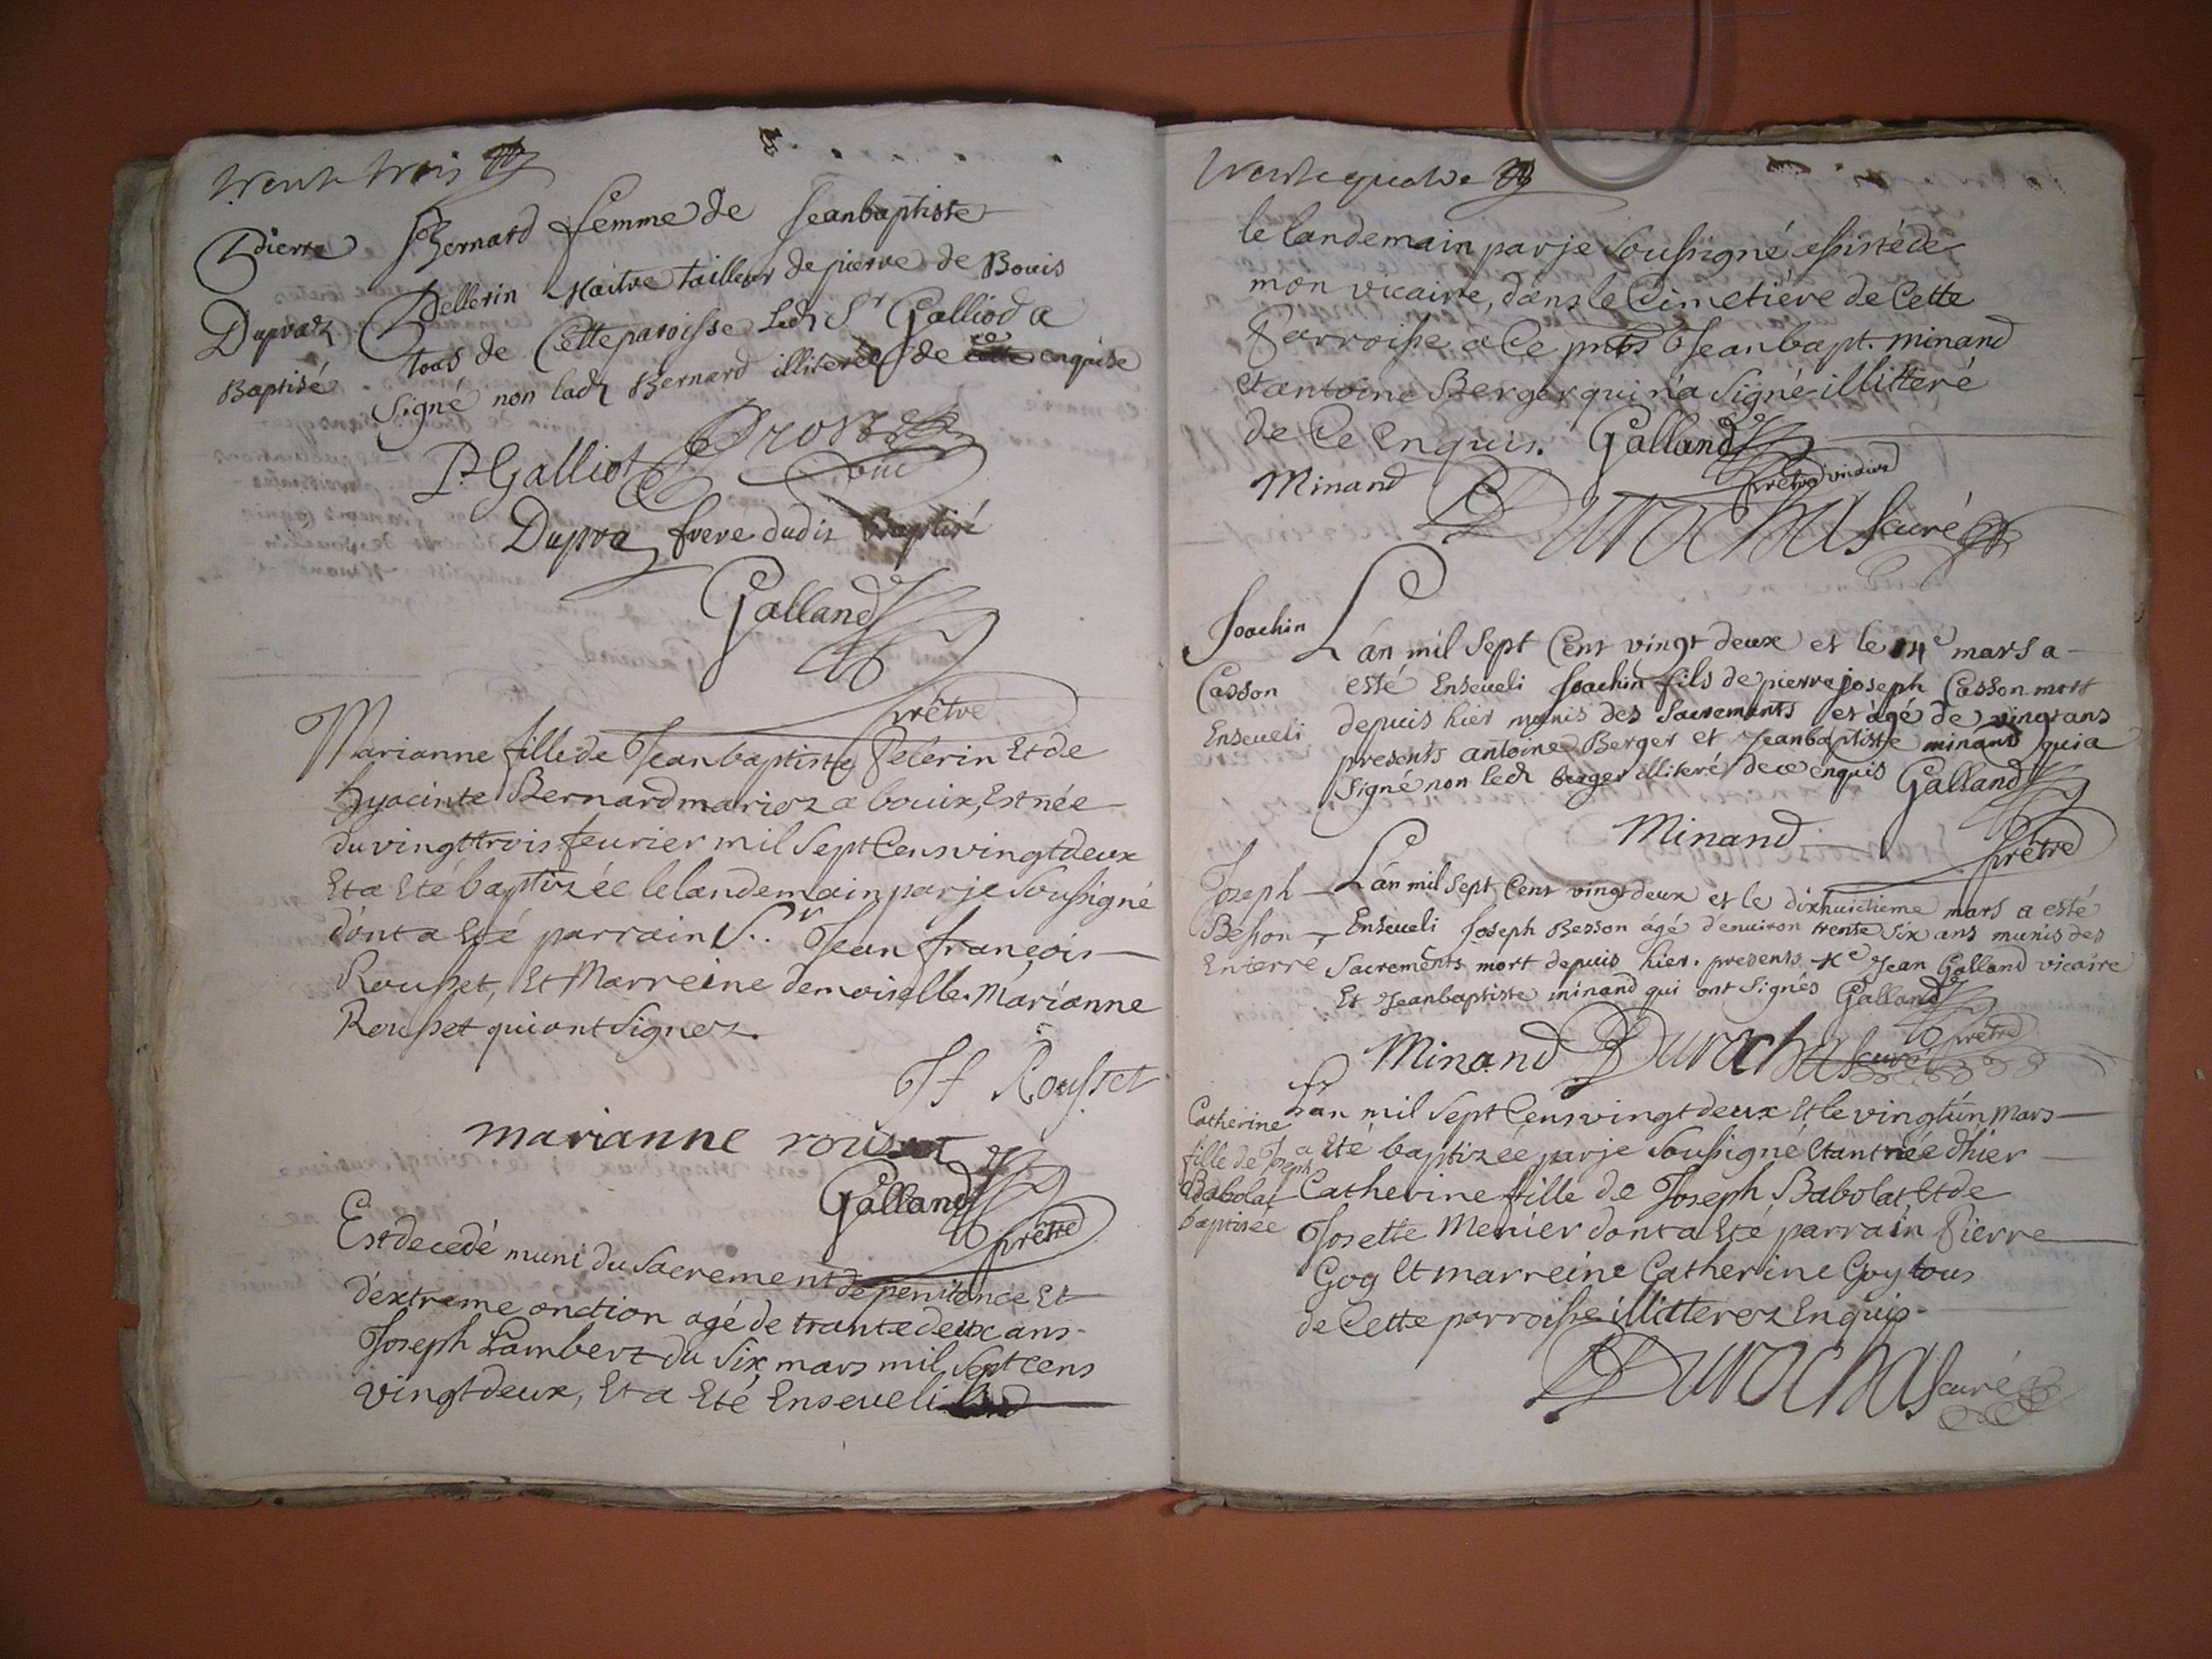 trente trois
Pierre Bernard femme de Jeanbaptiste
Pellerin Maitre tailleur de pierre de Bouis
Dupraz tous de Cette paroisse Ledt Sr Galliod a
Baptisé Signé non ladt Bernard illiterée de ce enquise
P. Galliot
Dupra frere dudit Baptisé
Galland
prêtre
Marianne fille de Jeanbaptiste Pelerin Et de
hyacinte Bernard mariez a bouix, Est née
du vingttrois feurier mil Sept Cens vingtdeux
Et a Eté baptizée le landemain par je Soussigné
dont a Eté parrain Sr. Jean françois
Rousset, Et Marreine demoiselle Marianne
Rousset qui ont Signez.
Jf Rousset
marianne rouset
Galland
prêtre
Est decedé muni du Sacrement de penitence Et
d'extreme onction agé de trante deux ans
Joseph Lambert du Six mars mil Sept cens
vingtdeux, Et a Eté Enseveli
trente quatre
le landemain par je Soussigné assisté de
mon vicaire, dans le Cimetiére de Cette
Parroisse a Ce pnts Jean bapt. minand
et antoine Berger qui n'a Signé illitteré
de Ce Enquis. Galland
prêtre vicaire
Minand
Durochas curé
Joachin Casson Enseueli
L'an mil Sept Cent vingt deux et le 14e mars a
esté Enseueli Joachin fils de pierre joseph Casson mort
depuis hier munis des Sacrements et âgé de vingt ans
presents antoine Berger et Jeanbaptiste minand qui a
Signé non ledt berger illiteré de ce enquis Galland
Minand
prêtre
Joseph Besson Enterré
L'an mil Sept Cent vingt deux et le dixhuictieme mars a esté
Enseueli Joseph Besson âgé d'enuiron trente Six ans munis des
Sacrements mort depuis hier. presents Me Jean Galland vicaire
Et Jeanbaptiste minand qui ont Signés Galland
prêtre
Minand Durochas curé
Catherine fille de Joseph Babolat baptisée
L'an mil Sept Cens vingtdeux Et le vingtún Mars
a Eté baptizée par je Soussigné Etant née d'hier
Catherine fille de Joseph Babolat, Et de
Josette Menier dont a Eté parrain Pierre
Goy Et marreine Catherine Goy tous
de Cette parroisse illitterez Enquis.
Durochas curé